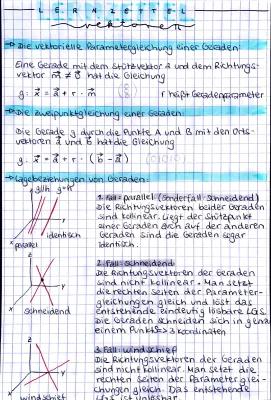 LERNZETTEL
vektoren
Die vektorielle Parametergleichung einer Geraden:
Eine Gerade mit dem Stützvektor a⃗ und dem Richtungs-
vektor m⃗ ≠ 0⃗ hat die Gleichung
g: x⃗ = a⃗ + r · m⃗ r heißt Geradenparameter
Die Zweipunktgleichung einer Geraden:
Die Gerade g durch die Punkte A und B mit den Orts-
vektoren a⃗ und b⃗ hat die Gleichung
g: x⃗ = a⃗ + r · (b⃗ - a⃗)
Lagebeziehungen von Geraden:
z g||h g=h
y
x
parallel identisch
1. Fall = parallel (Sonderfall =
Die Richtungsvektoren beider Geraden
sind kollinear. Liegt der Stützpunkt
einer Geraden auch auf der anderen
Geraden sind die Geraden sogar
identisch.
z
x
schneidend
2. Fall = schneidend
Die Richtungsvektoren der Geraden
sind nicht kollinear. Man setzt
die rechten Seiten der Parameter-
gleichungen gleich und löst das
entstehende eindeutig lösbare LGS.
Die Geraden schneiden sich in genau
einem Punkt S → 3 Koordinaten
z
x
windschief
3. Fall = windschief
Die Richtungsvektoren der Geraden
sind nicht kollinear. Man setzt die
rechten Seiten der Parameterglei-
chungen gleich. Das entstehende
LGS ist unlösbar.